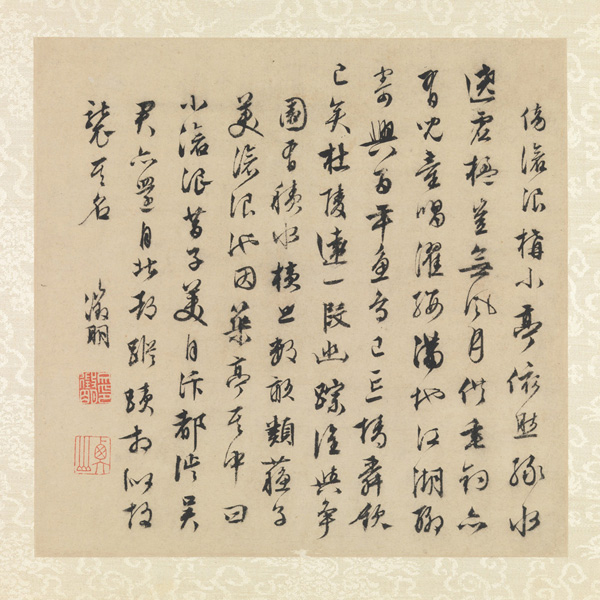 傍滄浪搆小亭依然綠水
遶虛楹豈無風月供垂釣亦
有兒童唱濯纓滿地江湖聊
寄興百年魚鳥已忘情舜欽
已矣杜陵遠一段幽踪誰與爭
園有積水橫亘數畝類蘇子
美滄浪池因築亭其中曰
小滄浪昔子美自汴都徙吳
君亦還自北都蹤跡相似故
襲其名
徵明